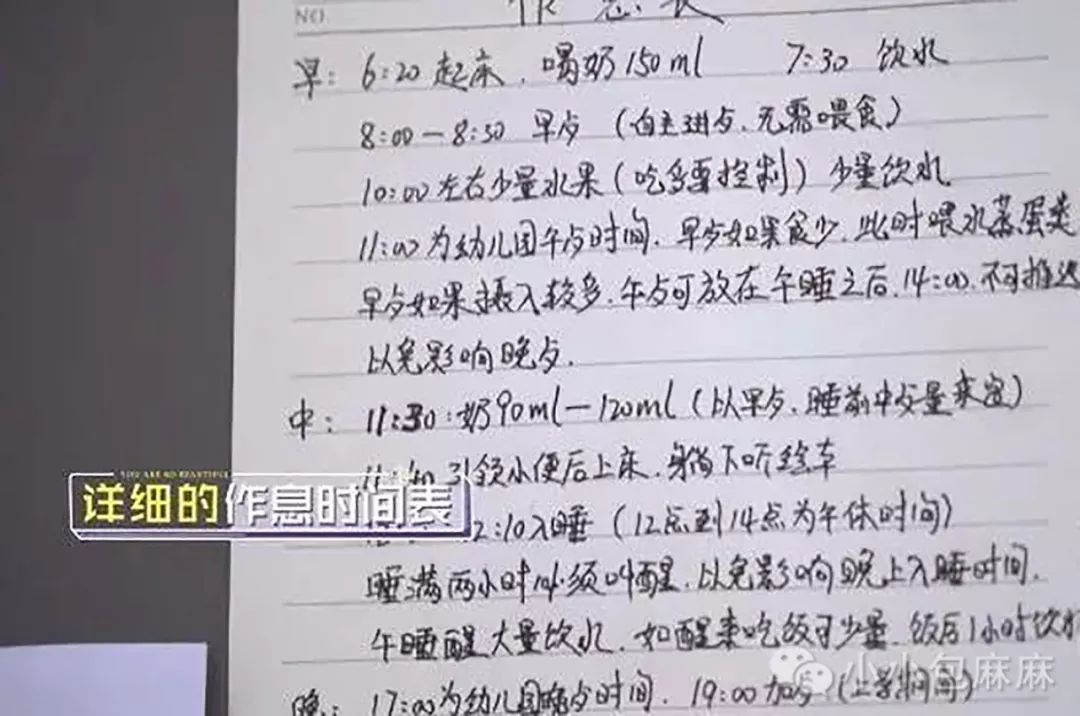 NO
作息表
早: 6:20 起床, 喝奶150ml 7:30 饮水
8:00-8:30 早点 (自主进点, 无需喂食)
10:00左右少量水果 (吃多要控制) 少量饮水
11:00为幼儿园午点时间. 早点如果食少. 此时喂水蒸蛋类
早点如果摄入较多. 午点可放在午睡之后. 14:00. 不可推迟
以免影响晚点.
中: 11:30:奶90ml-120ml (以早点. 睡前中点量来定)
引领小便后上床. 躺下听
YOU ARE SO BEAUTIFUL
详细的作息时间表
12:10入睡 (12点到14点为午休时间)
睡满两小时必须叫醒. 以免影响晚上入睡时间.
午睡醒大量饮水. 如醒来吃饭可少量. 饭后1小时饮水
晚: 17:00为幼儿园晚点时间. 19:00加点 (上学期间)
小小包麻麻